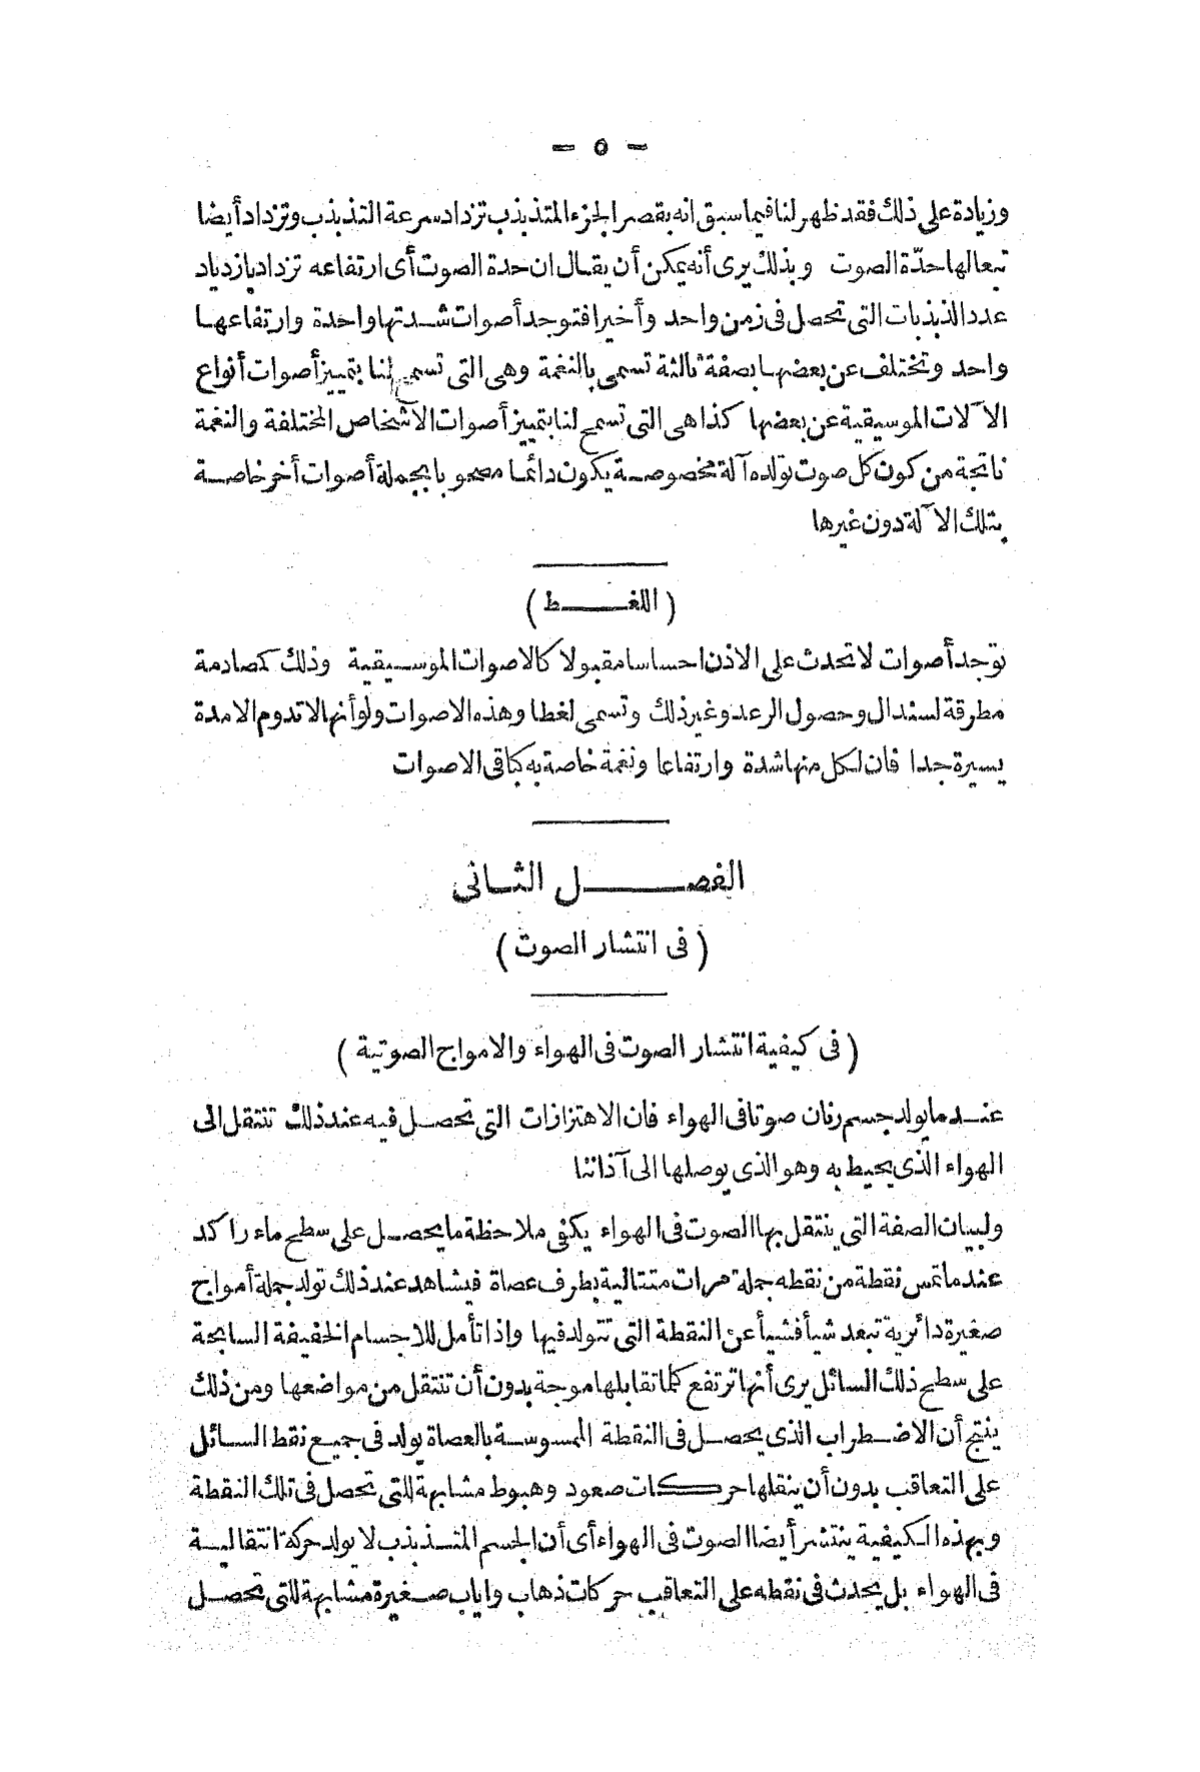 — ٥ —
وزيادة على ذلك فقد ظهر لنا فيما سبق انه بقصر الجزء المتذبذب تزداد سرعة التذبذب وتزداد أيضا
تبعا لها حدّة الصوت وبذلك يرى أنه يمكن أن يقال ان حدة الصوت أى ارتفاعه تزداد بازدياد
عدد الذبذبات التى تحصل فى زمن واحد وأخيرا فتوجد أصوات شدتها واحدة وارتفاعها
واحد وتختلف عن بعضها بصفة ثالثة تسمى بالنغمة وهى التى تسمح لنا بتمييز أصوات أنواع
الآلات الموسيقية عن بعضها كذا هى التى تسمح لنا بتمييز أصوات الاشخاص المختلفة والنغمة
ناتجة من كون كل صوت تولده آلة مخصوصة يكون دائما مصحوبا بجملة أصوات أخر خاصة
بتلك الآلة دون غيرها
(اللغط)
توجد أصوات لا تحدث على الاذن احساسا مقبولا كالاصوات الموسيقية وذلك كمصادمة
مطرقة لسندال وحصول الرعد وغير ذلك وتسمى لغطا وهذه الاصوات ولو أنها لا تدوم الا مدة
يسيرة جدا فان لكل منها شدة وارتفاعا ونغمة خاصة به كباقى الاصوات
الفصل الثانى
(فى انتشار الصوت)
(فى كيفية انتشار الصوت فى الهواء والامواج الصوتية)
عند ما يولد جسم رنان صوتا فى الهواء فان الاهتزازات التى تحصل فيه عند ذلك تنتقل الى
الهواء الذى يحيط به وهو الذى يوصلها الى آذاننا
ولبيان الصفة التى ينتقل بها الصوت فى الهواء يكفى ملاحظة ما يحصل على سطح ماء راكد
عند ما تمس نقطة من نقطه جملة مرات متتالية بطرف عصاة فيشاهد عند ذلك تولد جملة أمواج
صغيرة دائرية تبعد شيأ فشيأ عن النقطة التى تتولد فيها واذا تأمل للاجسام الخفيفة السابحة
على سطح ذلك السائل يرى أنها ترتفع كلما تقابلها موجة بدون أن تنتقل من مواضعها ومن ذلك
ينتج أن الاضطراب الذى يحصل فى النقطة الممسوسة بالعصاة يولد فى جميع نقط السائل
على التعاقب بدون أن ينقلها حركات صعود وهبوط مشابهة للتى تحصل فى تلك النقطة
وبهذه الكيفية ينتشر أيضا الصوت فى الهواء أى أن الجسم المتذبذب لا يولد حركة انتقالية
فى الهواء بل يحدث فى نقطه على التعاقب حركات ذهاب واياب صغيرة مشابهة للتى تحصل